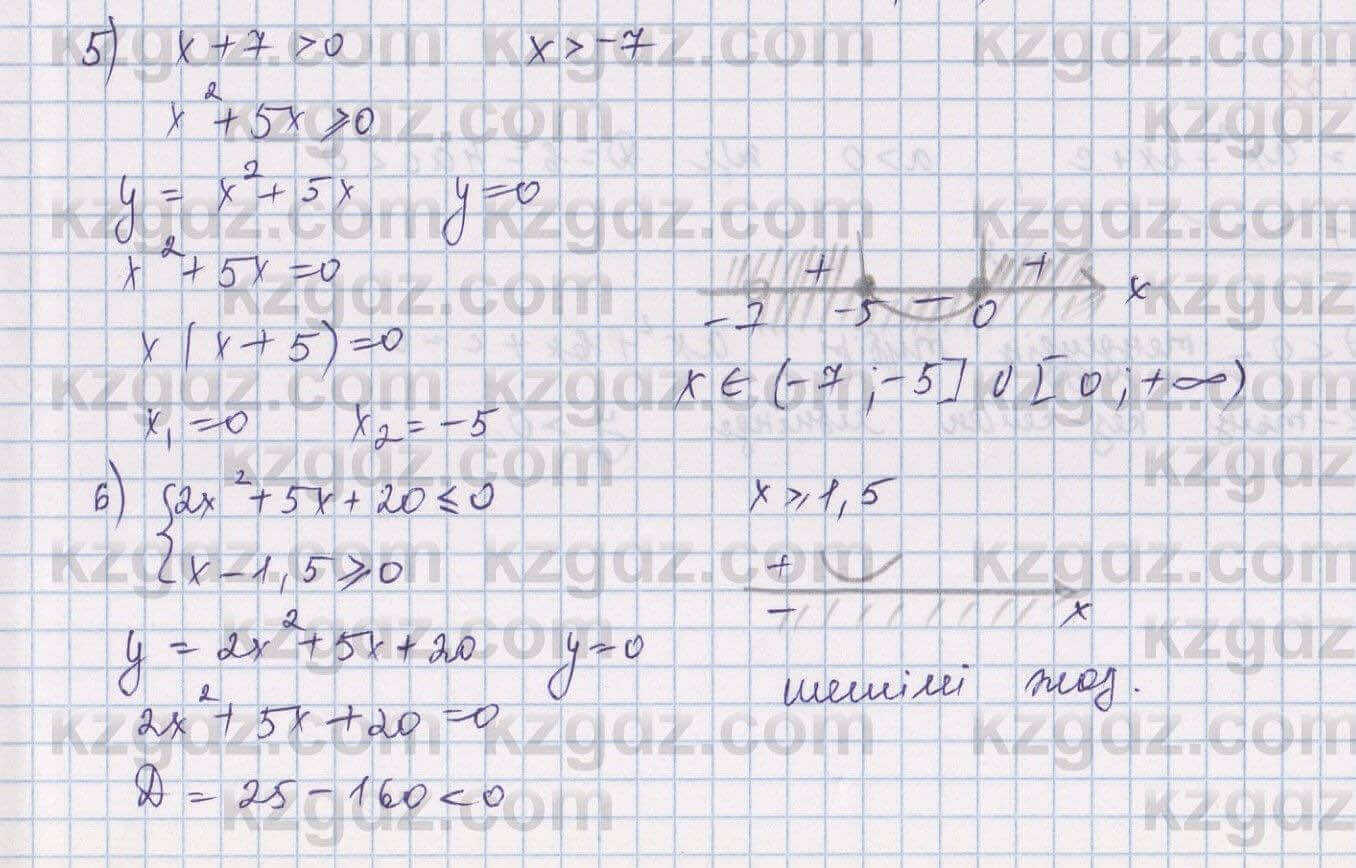 5) x + 7 > 0 x > -7
x² + 5x ⩾ 0
y = x² + 5x y = 0
x² + 5x = 0
x (x + 5) = 0
x₁ = 0 x₂ = -5
+ - + x
-7 -5 0
x ∈ (-7; -5] ∪ [0; +∞)
6) { 2x² + 5x + 20 ⩽ 0
x - 1,5 ⩾ 0
x ⩾ 1,5
y = 2x² + 5x + 20 y = 0
2x² + 5x + 20 = 0
D = 25 - 160 < 0
+
- x
шешімі жоқ.
kzgdz.com